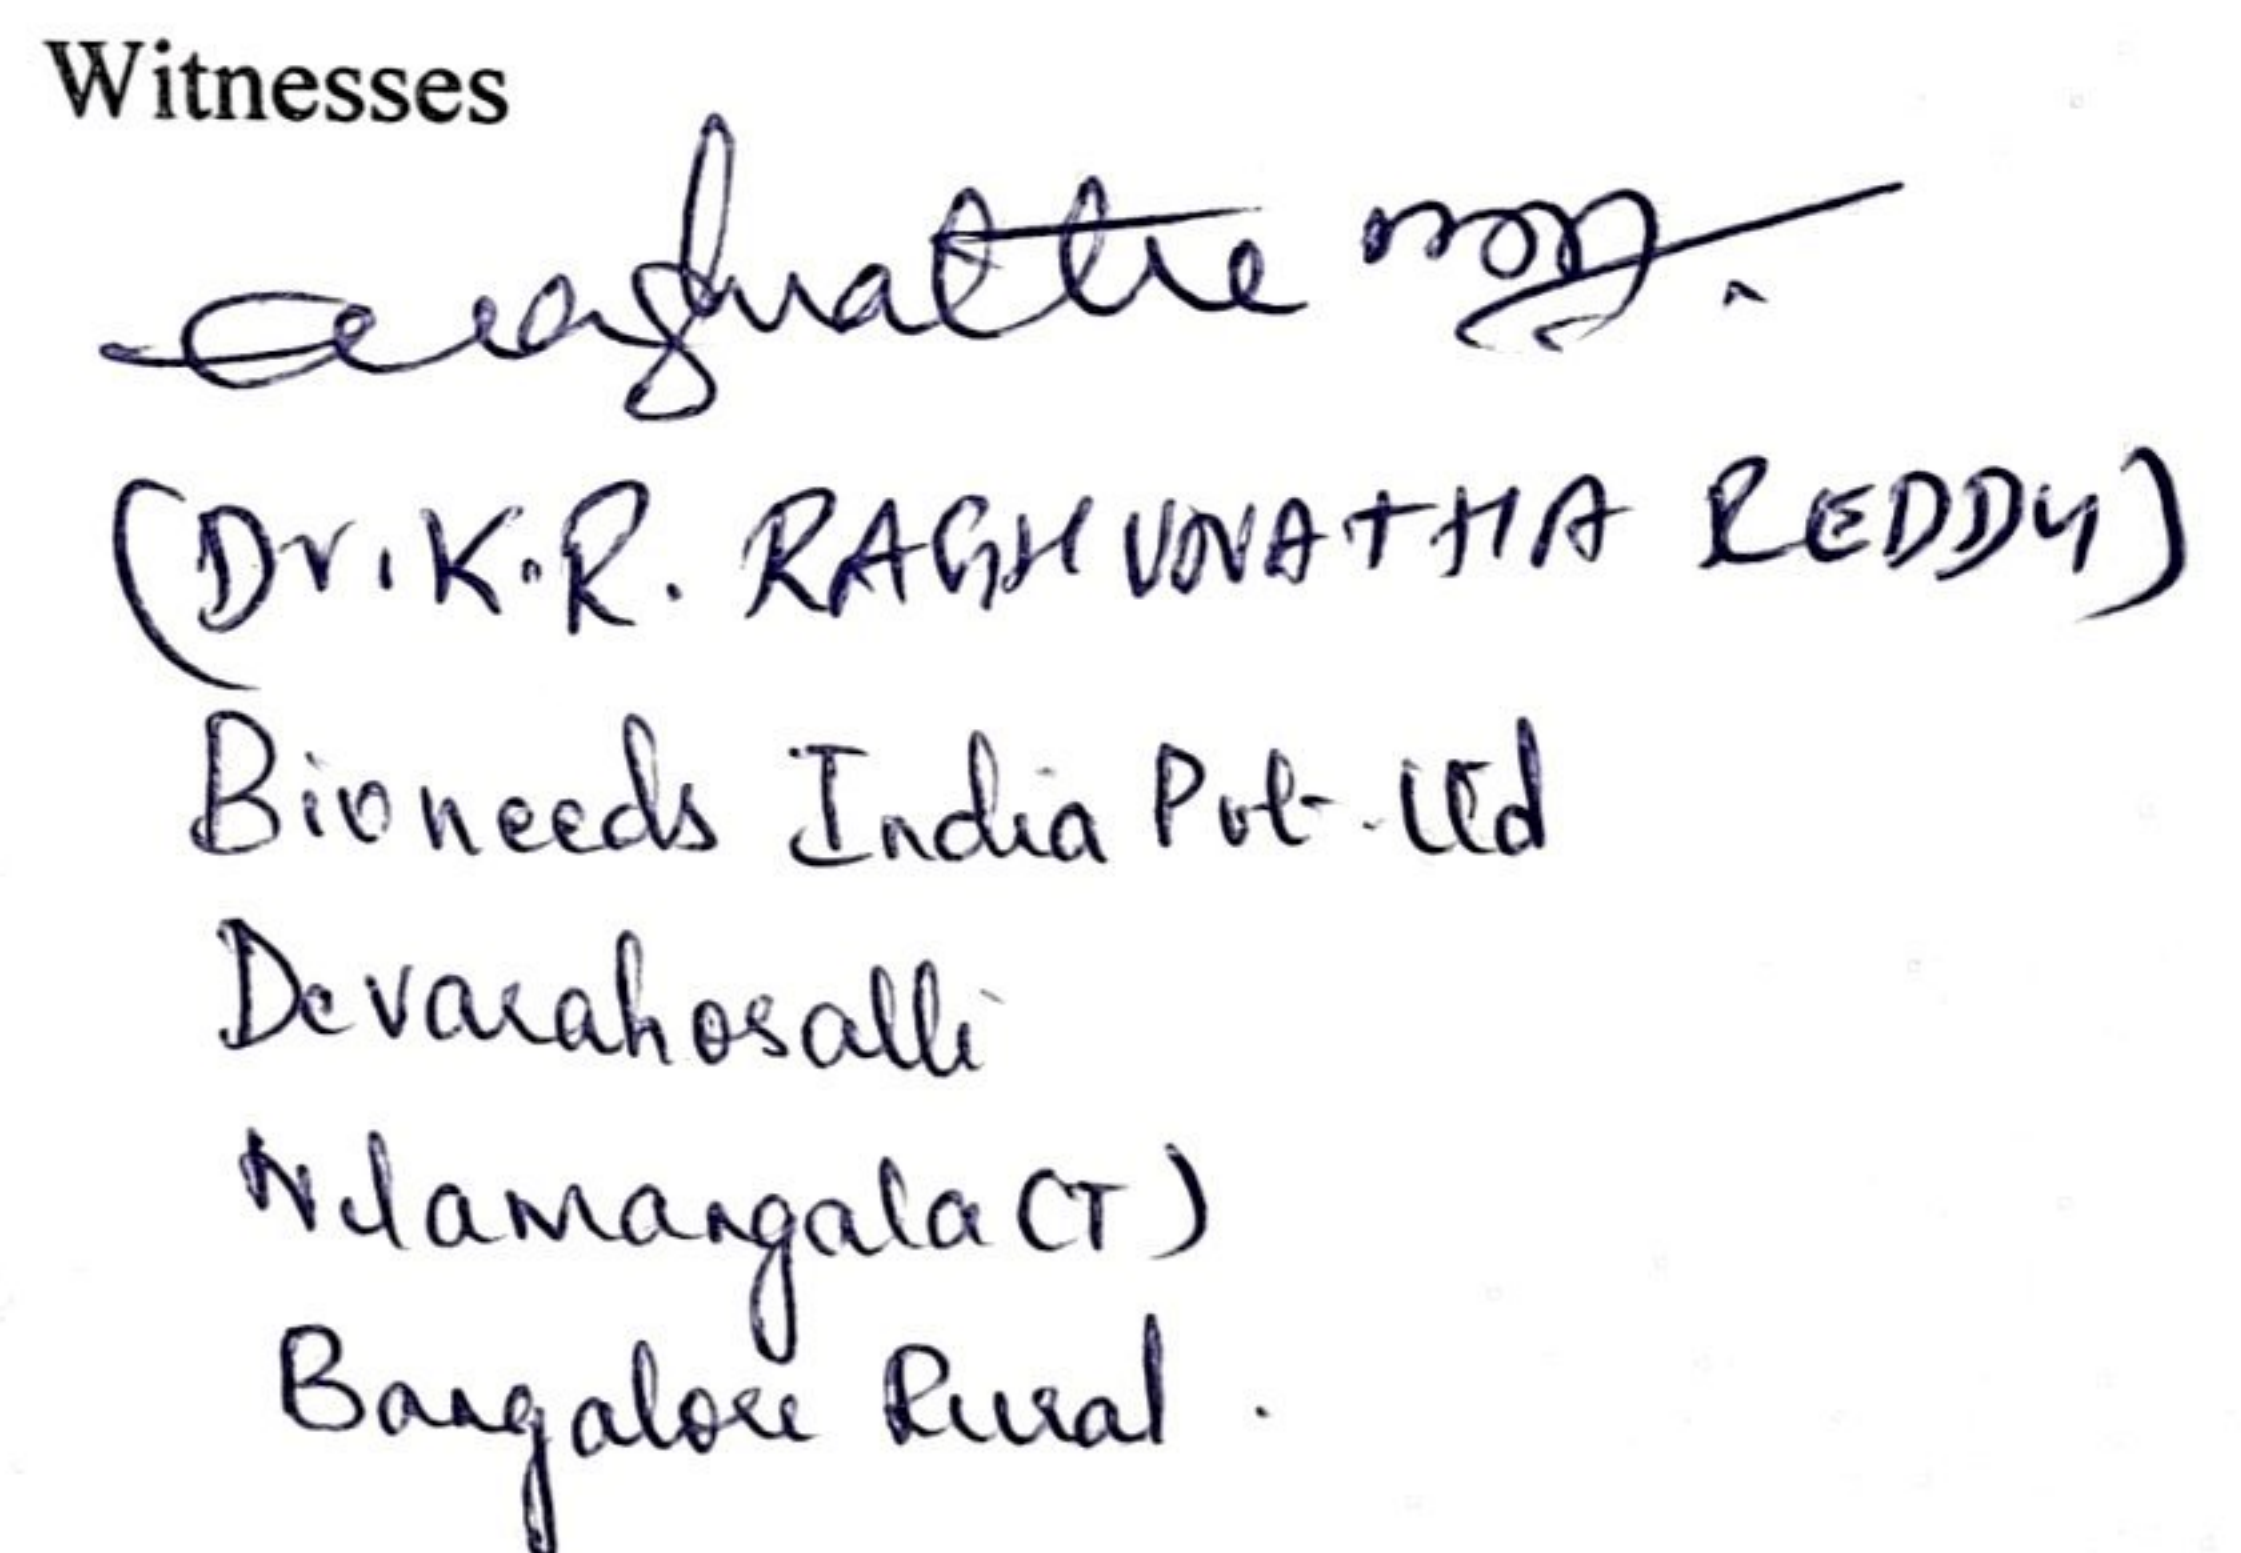 Witnesses
(Dr. K.R. RAGHUNATHA REDDY)
Bioneeds India Pvt. Ltd
Devarahosalli
Nelamangala (T)
Bangalore Rural.